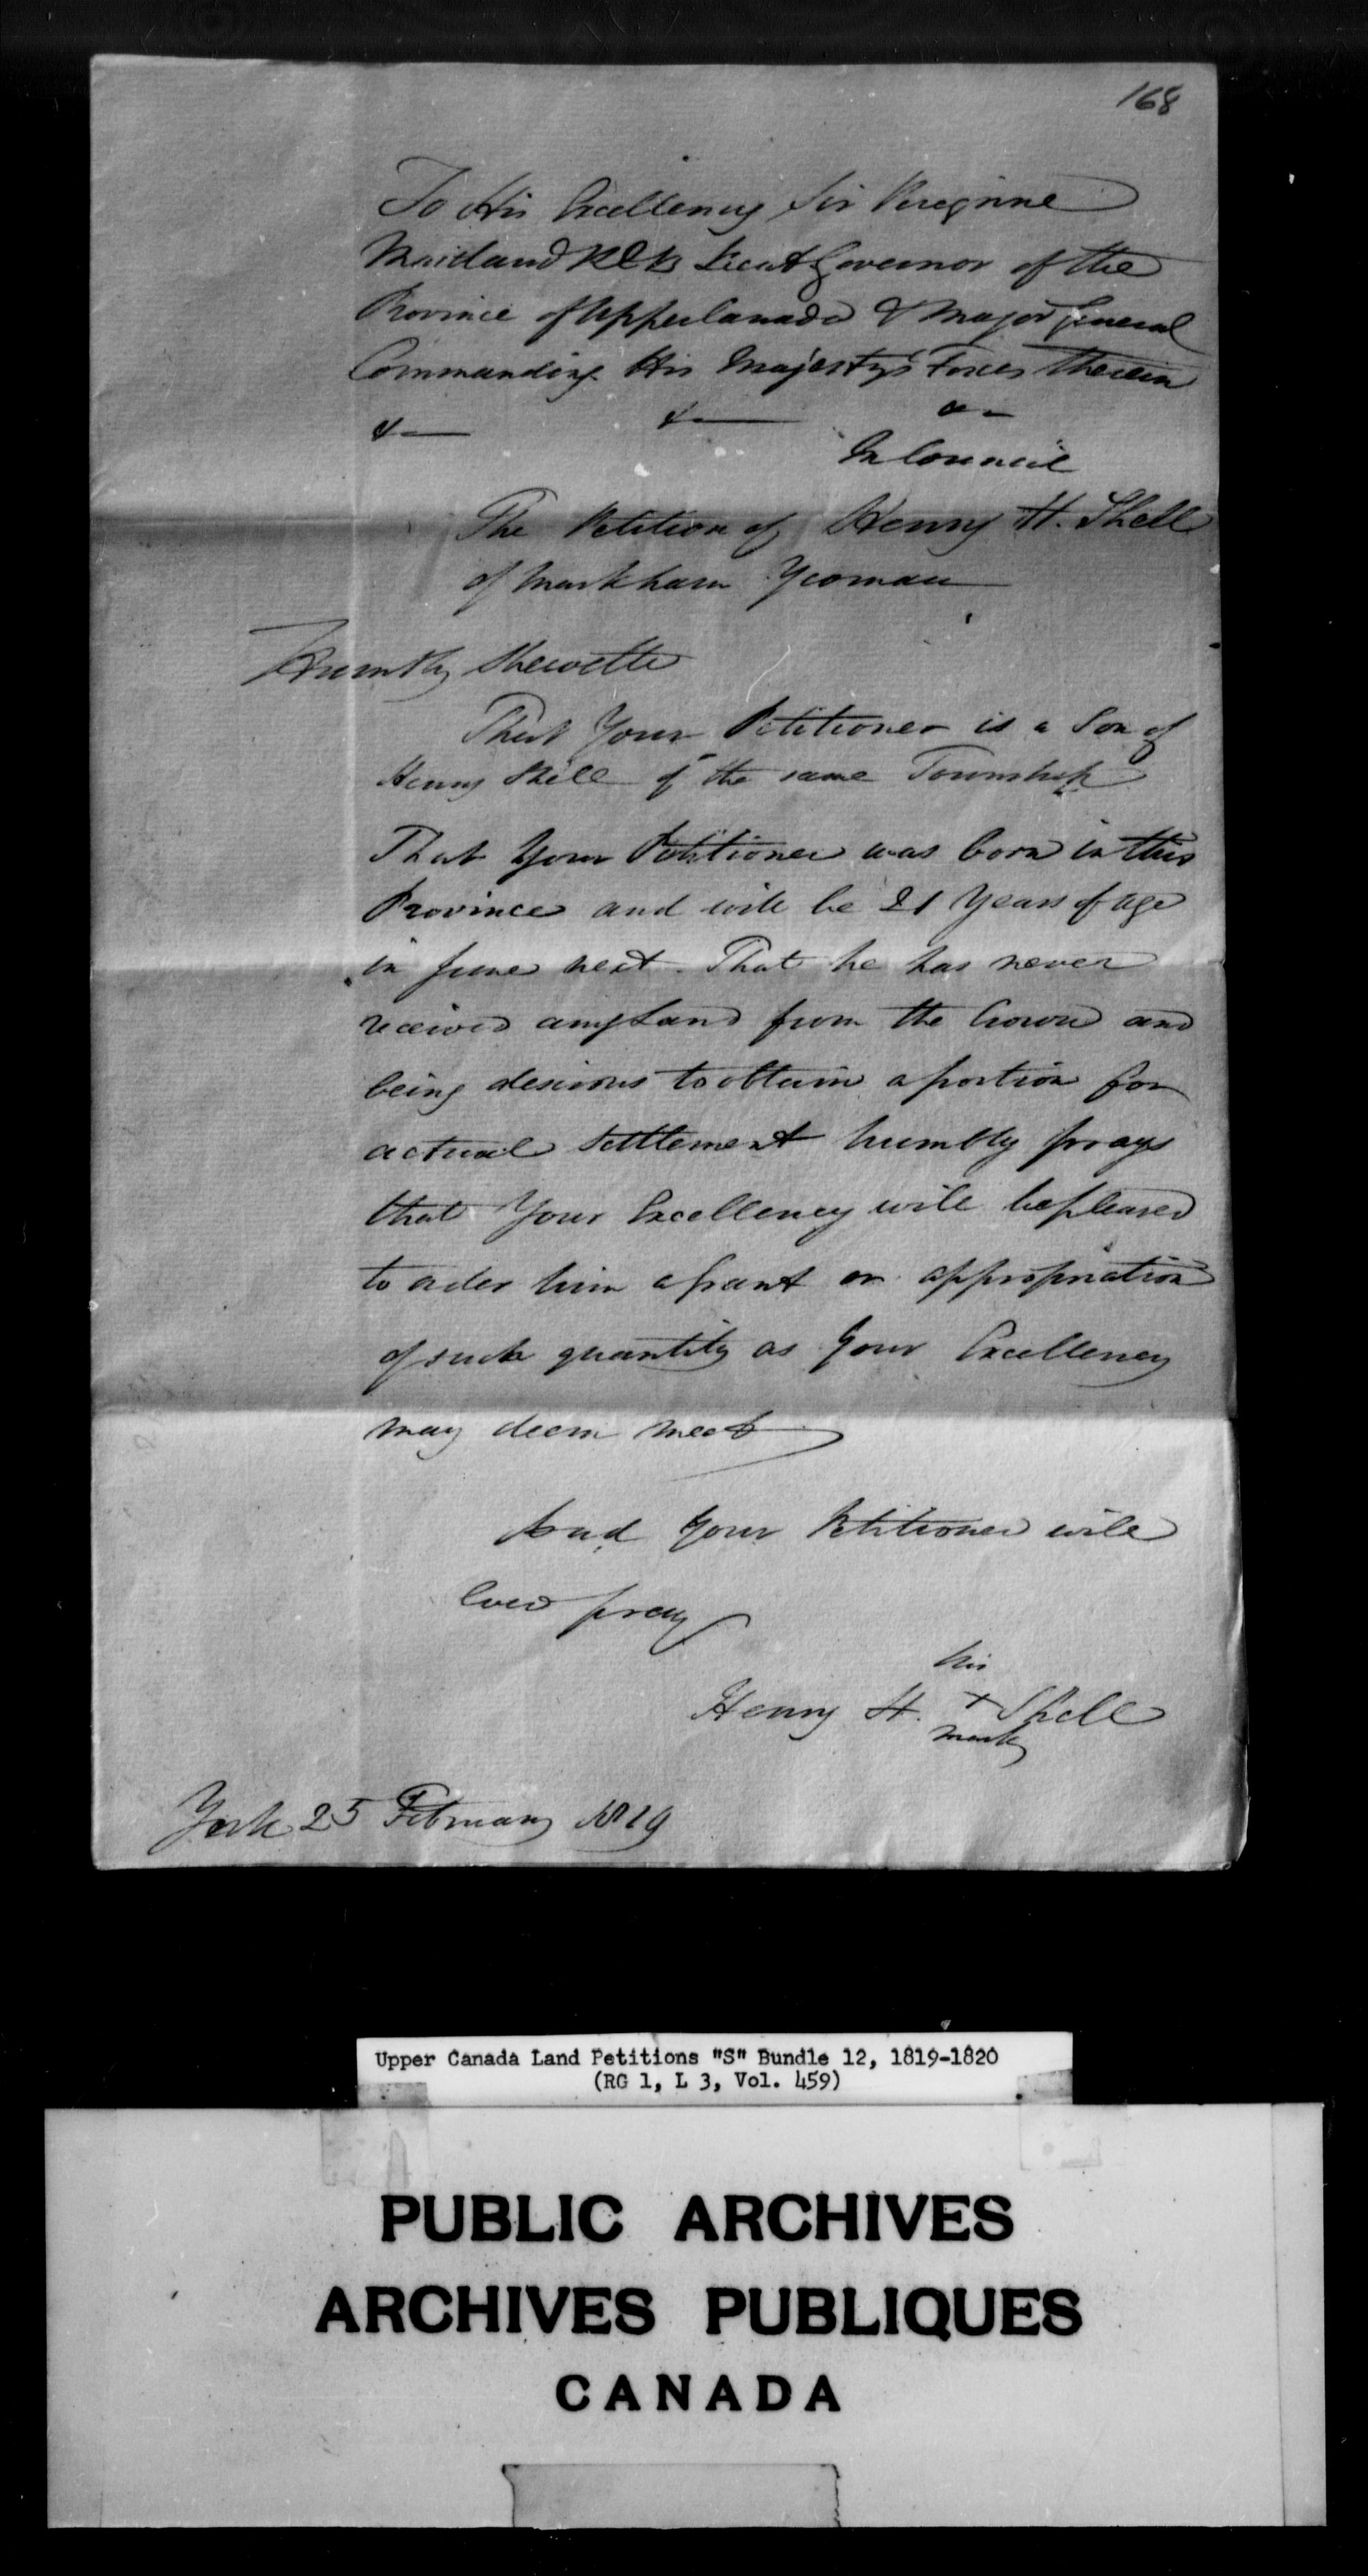 168
To His Excellency Sir Peregrine
Maitland KCB Lieut Governor of the
Province of Upper Canada & Major General
Commanding His Majesty's Forces Therein
&— &— &—
In Council
The Petition of Henry H. Shell
of Markham Yeoman
Humbly Sheweth
That Your Petitioner is a Son of
Henry Shell of the same Township
That Your Petitioner was born in this
Province and will be 21 Years of age
in June next. That he has never
received any Land from the Crown and
being desirous to obtain a portion for
actual Settlement humbly prays
that Your Excellency will be pleased
to order him a Grant or appropriation
of such quantity as Your Excellency
may deem meet
And Your Petitioner will
ever pray
his
Henry H. + Shell
mark
York 25 February 1819
Upper Canada Land Petitions "S" Bundle 12, 1819-1820
(RG 1, L 3, Vol. 459)
PUBLIC ARCHIVES
ARCHIVES PUBLIQUES
CANADA